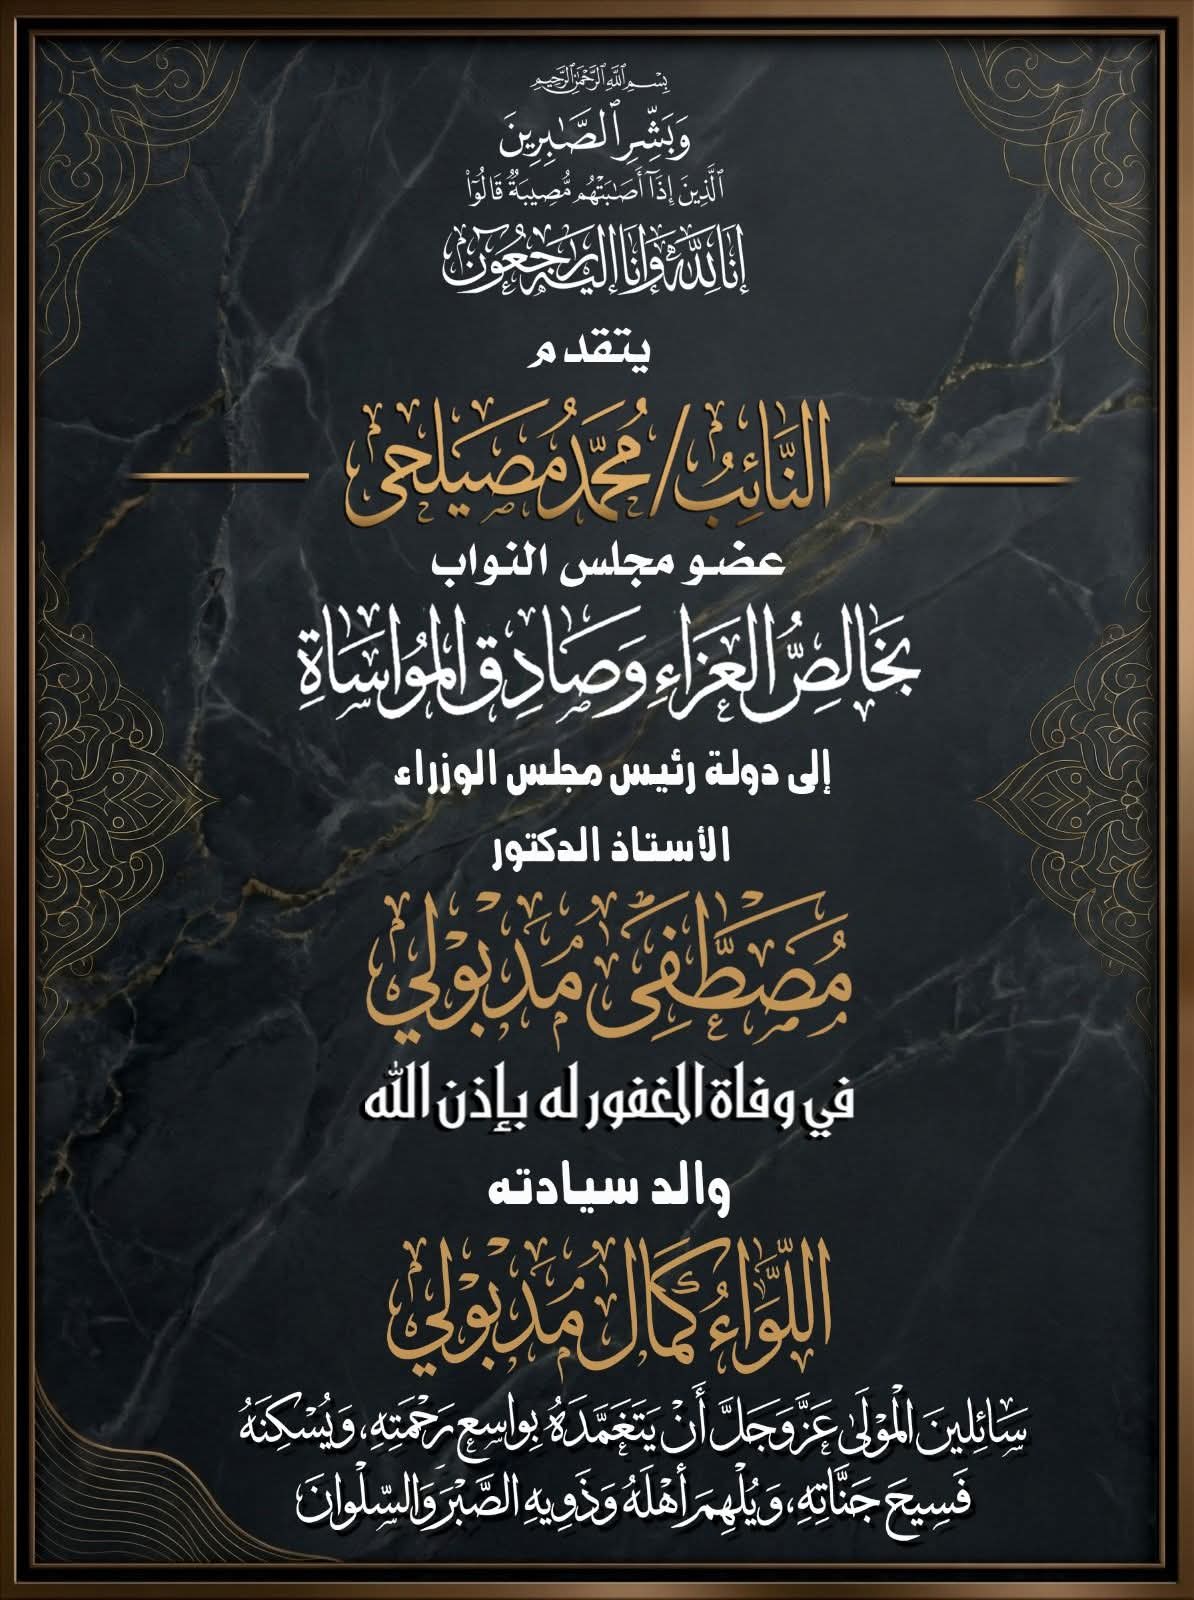 بِسْمِ اللَّهِ الرَّحْمَٰنِ الرَّحِيمِ
وَبَشِّرِ الصَّابِرِينَ
الَّذِينَ إِذَا أَصَابَتْهُم مُّصِيبَةٌ قَالُوا
إنا لله وإنا إليه راجعون
يتقدم
النَّائِبُ / مُحَمَّد مُصَيلحى
عضو مجلس النواب
بخَالِصُّ العَزَاءِ وَصَادِقِ المُوَاسَاةِ
إلى دولة رئيس مجلس الوزراء
الأستاذ الدكتور
مُصْطَّفِىَ مَدبَولي
في وفاة المغفور له بإذن الله
والد سيادته
اللِّوَاءُ كَمَال مَدبَولي
سَائِلِينَ الْمَوْلَى عَزَّ وَجَلَّ أَنْ يَتَغَمَّدَهُ بِوَاسِعِ رَحْمَتِهِ، وَيُسْكِنَهُ
فَسِيحَ جَنَّاتِهِ، وَيُلْهِمَ أَهْلَهُ وَذَوِيهِ الصَّبْرَ وَالسِّلْوانَ